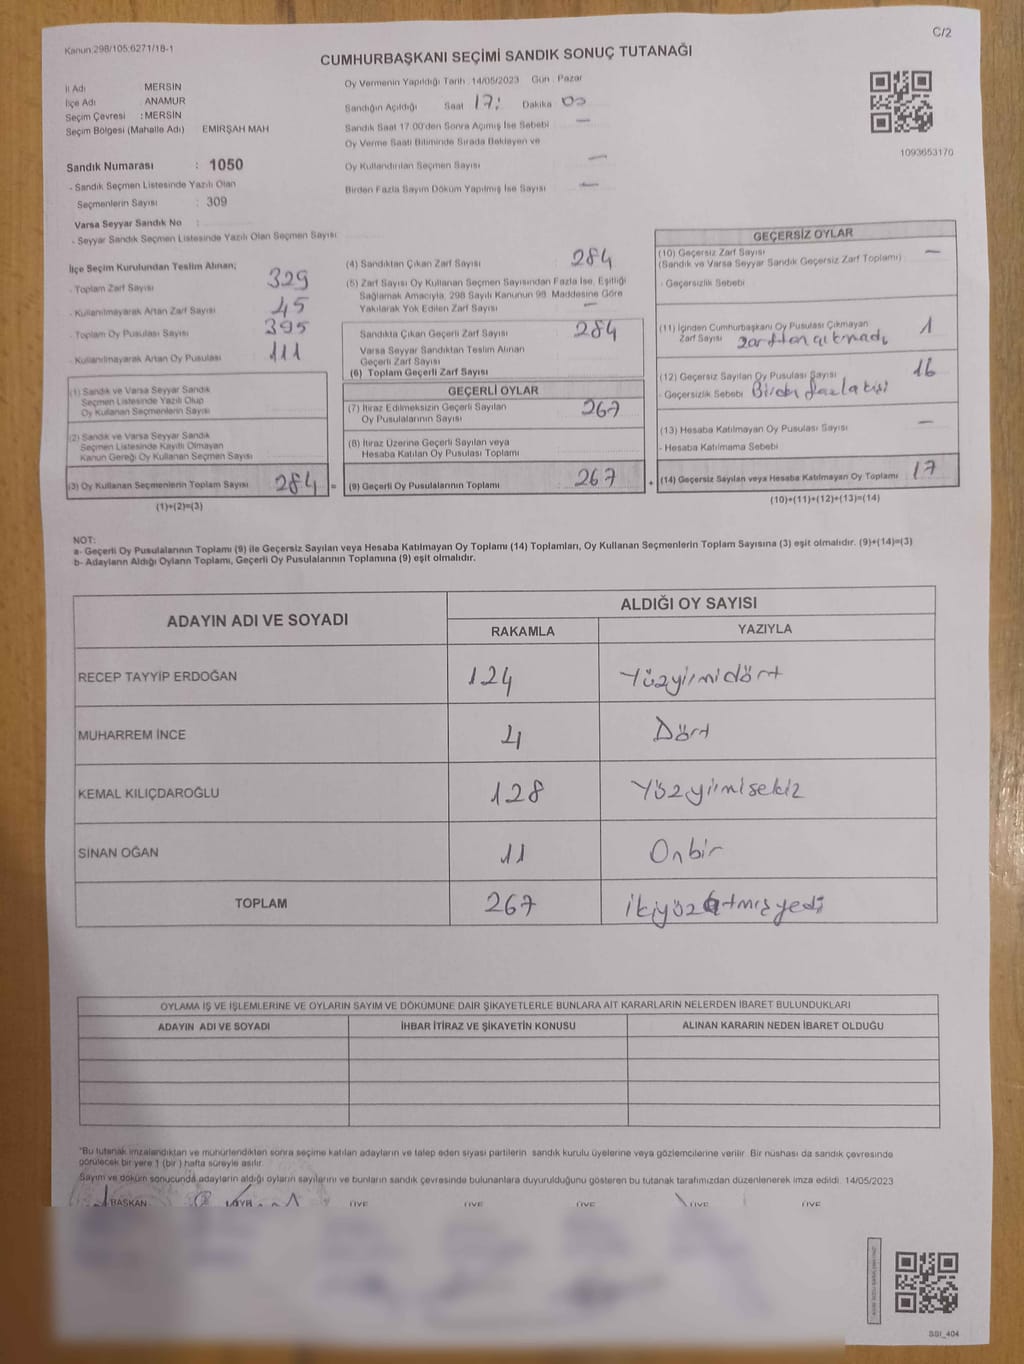 Kanun:298/105;6271/18-1
C/2
CUMHURBAŞKANI SEÇİMİ SANDIK SONUÇ TUTANAĞI
İl Adı MERSİN
İlçe Adı ANAMUR
Seçim Çevresi : MERSİN
Seçim Bölgesi (Mahalle Adı) EMİRŞAH MAH
Sandık Numarası : 1050
- Sandık Seçmen Listesinde Yazılı Olan
Seçmenlerin Sayısı : 309
Varsa Seyyar Sandık No :
- Seyyar Sandık Seçmen Listesinde Yazılı Olan Seçmen Sayısı
Oy Vermenin Yapıldığı Tarih : 14/05/2023 Gün : Pazar
Sandığın Açıldığı Saat 17: Dakika 00
Sandık Saat 17.00'den Sonra Açımış İse Sebebi —
Oy Verme Saati Bitiminde Sırada Bekleyen ve
Oy Kullandırılan Seçmen Sayısı —
Birden Fazla Sayım Döküm Yapılmış İse Sayısı —
1093653170
İlçe Seçim Kurulundan Teslim Alınan;
- Toplam Zarf Sayısı 329
- Kullanılmayarak Artan Zarf Sayısı 45
- Toplam Oy Pusulası Sayısı 395
- Kullanılmayarak Artan Oy Pusulası 111
(1) Sandık ve Varsa Seyyar Sandık
Seçmen Listesinde Yazılı Olup
Oy Kullanan Seçmenlerin Sayısı
(2) Sandık ve Varsa Seyyar Sandık
Seçmen Listesinde Kayıtlı Olmayan
Kanun Gereği Oy Kullanan Seçmen Sayısı
(3) Oy Kullanan Seçmenlerin Toplam Sayısı 284 =
(1)+(2)=(3)
(4) Sandıktan Çıkan Zarf Sayısı 284
(5) Zarf Sayısı Oy Kullanan Seçmen Sayısından Fazla İse, Eşitliği
Sağlamak Amacıyla, 298 Sayılı Kanunun 98. Maddesine Göre
Yakılarak Yok Edilen Zarf Sayısı —
Sandıkta Çıkan Geçerli Zarf Sayısı 284
Varsa Seyyar Sandıktan Teslim Alınan
Geçerli Zarf Sayısı
(6) Toplam Geçerli Zarf Sayısı
GEÇERLİ OYLAR
(7) İtiraz Edilmeksizin Geçerli Sayılan
Oy Pusulalarının Sayısı 267
(8) İtiraz Üzerine Geçerli Sayılan veya
Hesaba Katılan Oy Pusulası Toplamı
(9) Geçerli Oy Pusulalarının Toplamı 267 +
GEÇERSİZ OYLAR
(10) Geçersiz Zarf Sayısı —
(Sandık ve Varsa Seyyar Sandık Geçersiz Zarf Toplamı)
- Geçersizlik Sebebi
(11) İçinden Cumhurbaşkanı Oy Pusulası Çıkmayan 1
Zarf Sayısı zarftan çıkmadı
(12) Geçersiz Sayılan Oy Pusulası Sayısı 16
- Geçersizlik Sebebi Birden fazla kişi
(13) Hesaba Katılmayan Oy Pusulası Sayısı —
- Hesaba Katılmama Sebebi
(14) Geçersiz Sayılan veya Hesaba Katılmayan Oy Toplamı 17
(10)+(11)+(12)+(13)=(14)
NOT:
a- Geçerli Oy Pusulalarının Toplamı (9) ile Geçersiz Sayılan veya Hesaba Katılmayan Oy Toplamı (14) Toplamları, Oy Kullanan Seçmenlerin Toplam Sayısına (3) eşit olmalıdır. (9)+(14)=(3)
b- Adayların Aldığı Oyların Toplamı, Geçerli Oy Pusulalarının Toplamına (9) eşit olmalıdır.
ADAYIN ADI VE SOYADI
ALDIĞI OY SAYISI
RAKAMLA YAZIYLA
RECEP TAYYİP ERDOĞAN 124 Yüzyirmidört
MUHARREM İNCE 4 Dört
KEMAL KILIÇDAROĞLU 128 Yüzyirmisekiz
SİNAN OĞAN 11 Onbir
TOPLAM 267 ikiyüzatmışyedi
OYLAMA İŞ VE İŞLEMLERİNE VE OYLARIN SAYIM VE DÖKÜMÜNE DAİR ŞİKAYETLERLE BUNLARA AİT KARARLARIN NELERDEN İBARET BULUNDUKLARI
ADAYIN ADI VE SOYADI İHBAR İTİRAZ VE ŞİKAYETİN KONUSU ALINAN KARARIN NEDEN İBARET OLDUĞU
*Bu tutanak imzalandıktan ve mühürlendikten sonra seçime katılan adayların ve talep eden siyasi partilerin sandık kurulu üyelerine veya gözlemcilerine verilir. Bir nüshası da sandık çevresinde
görülecek bir yere 1 (bir) hafta süreyle asılır.
Sayım ve döküm sonucunda adayların aldığı oyların sayılarını ve bunların sandık çevresinde bulunanlara duyurulduğunu gösteren bu tutanak tarafımızdan düzenlenerek imza edildi. 14/05/2023
BAŞKAN ÜYE ÜYE ÜYE ÜYE ÜYE
SSI_404